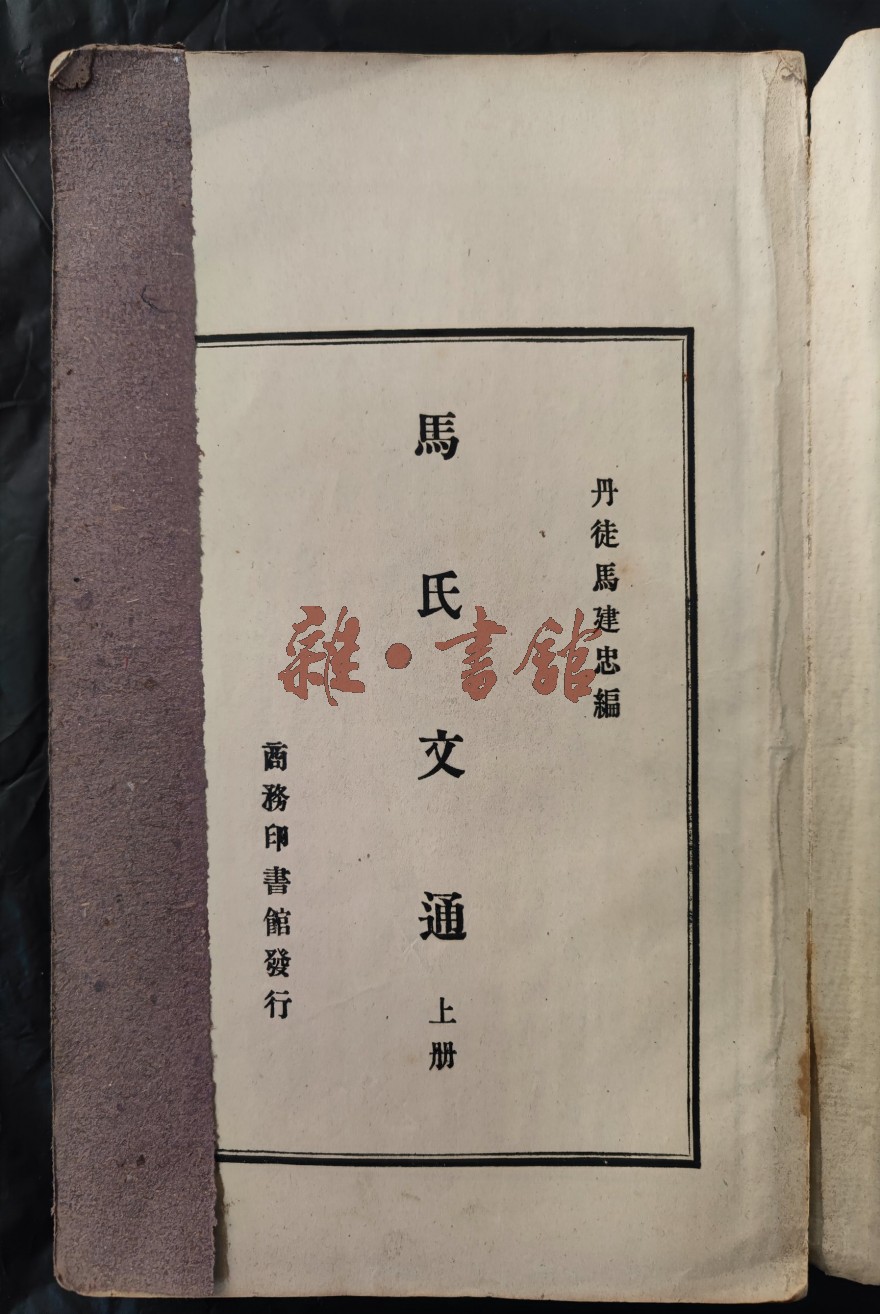 丹徒馬建忠編
馬氏文通 上册
商務印書館發行
雜·書館